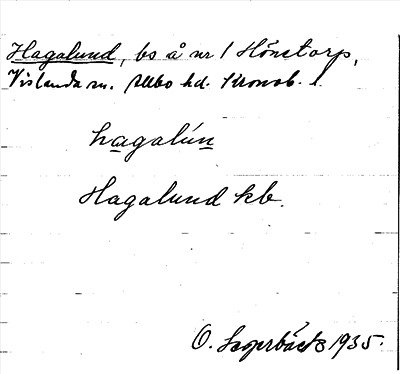 Hagalund, bo å nr 1 Hönetorp,
Vislanda sn. Allbo hd. Kronob. l.
hagalún
Hagalund kb.
O. 1935.